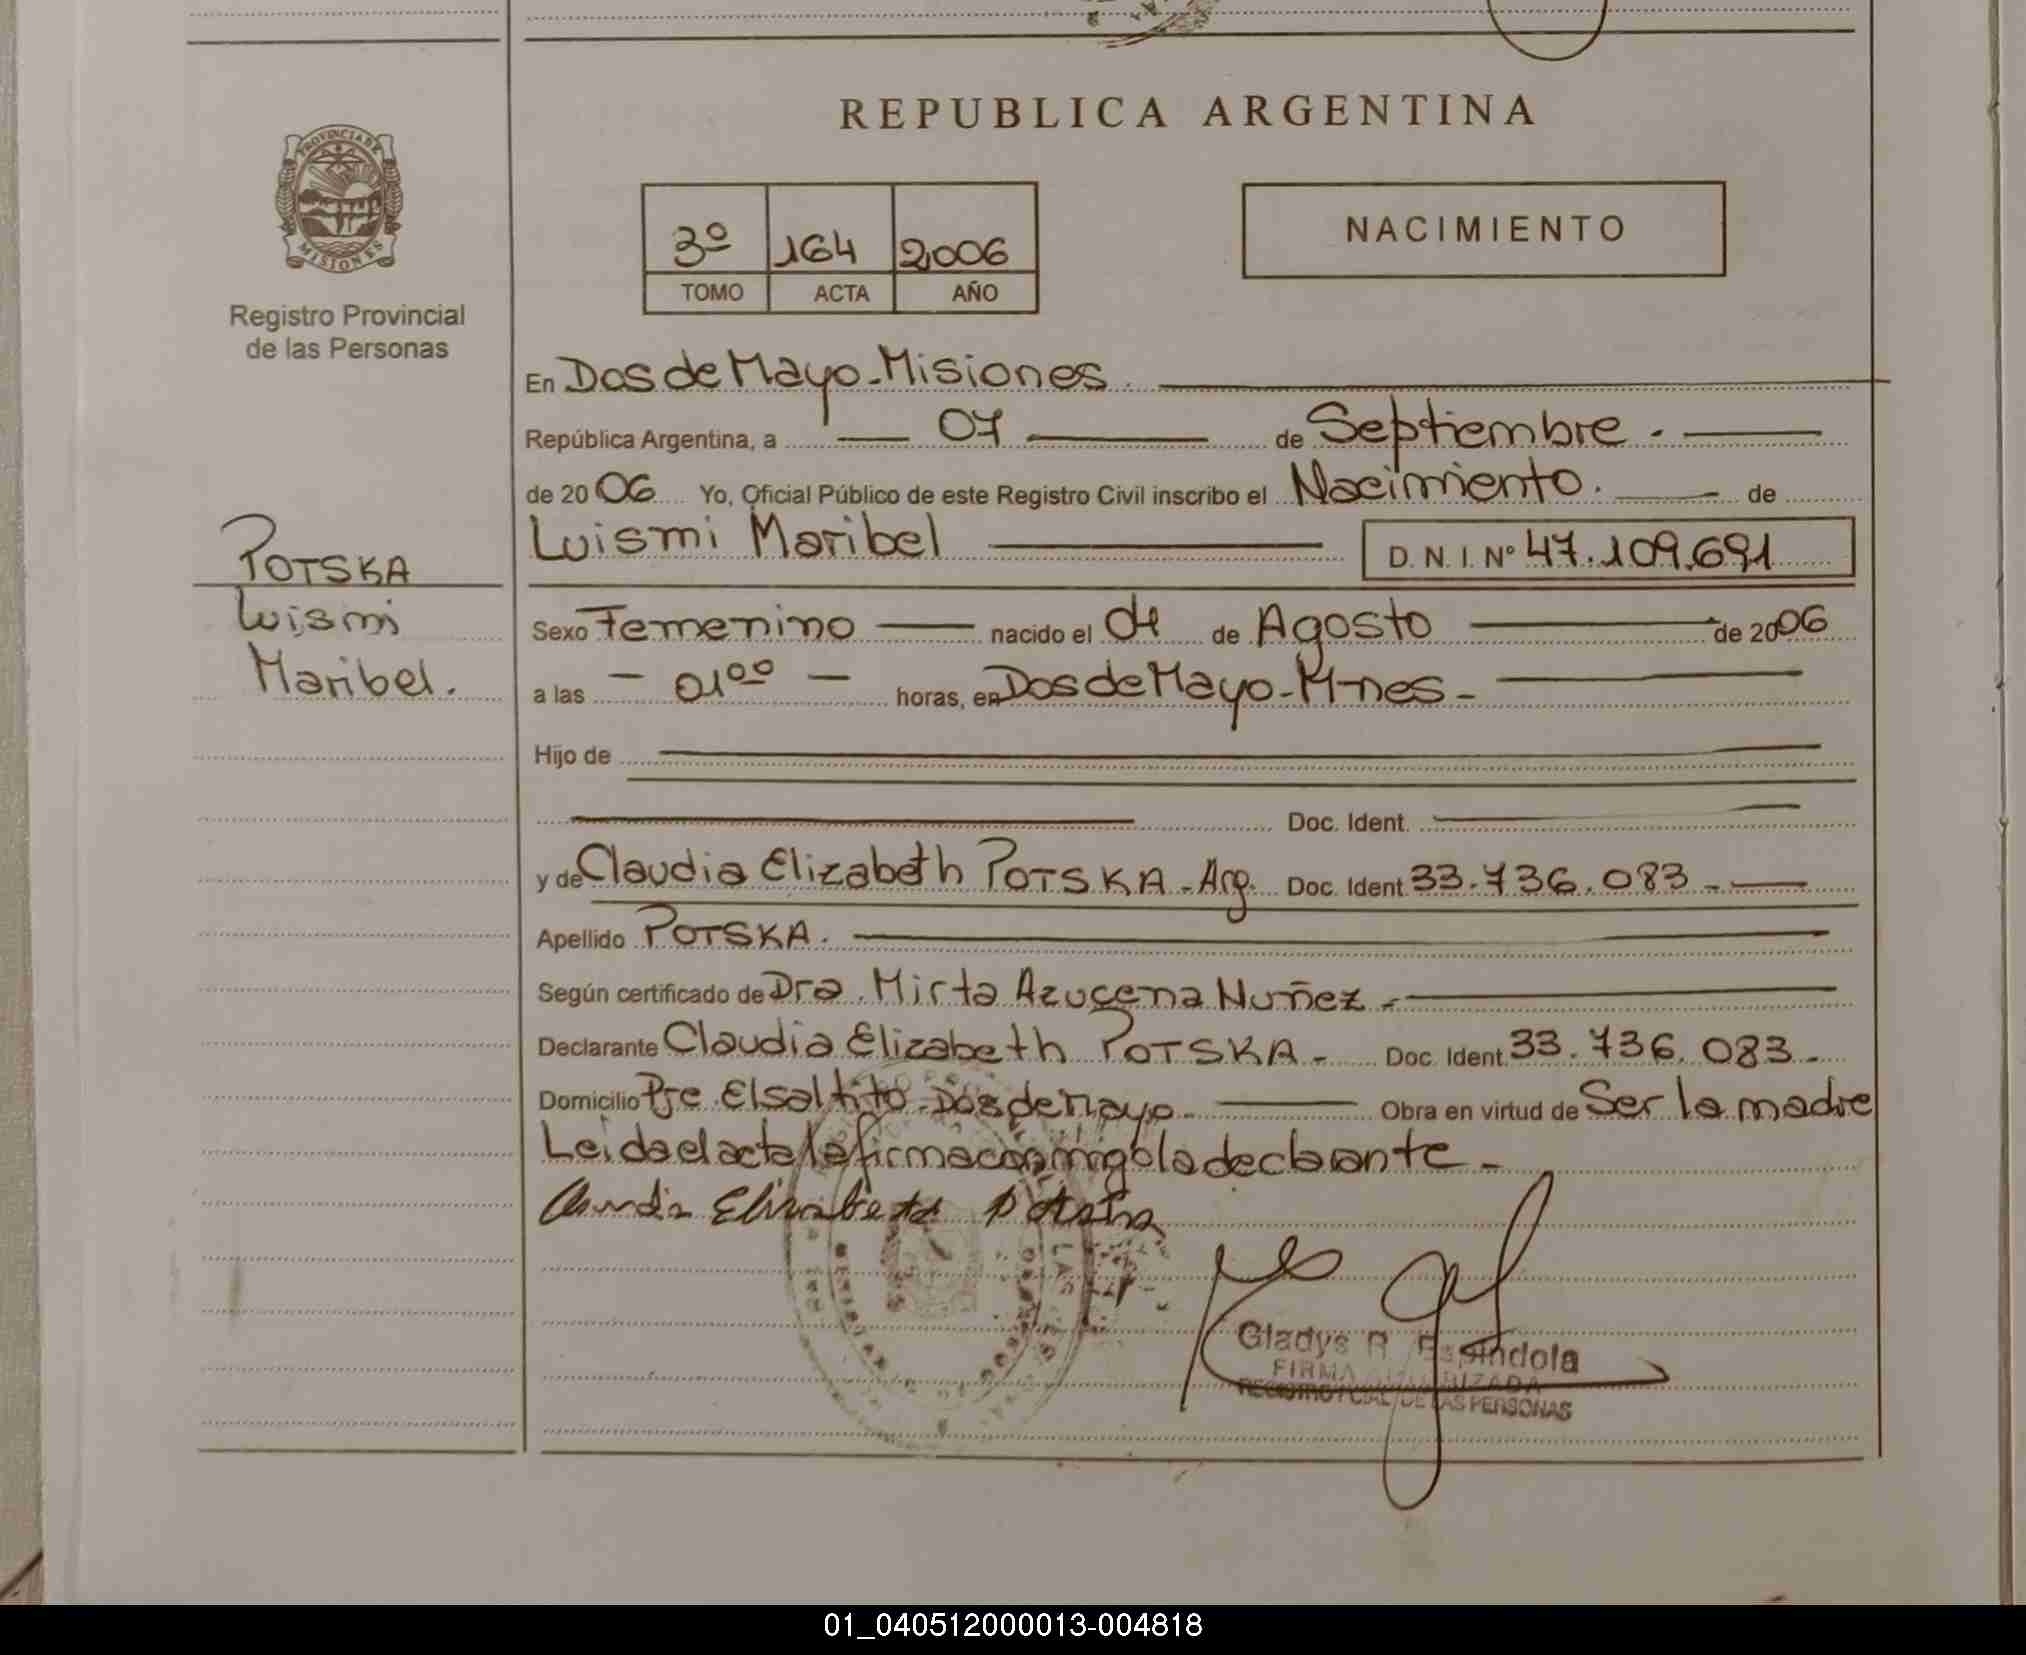 REPUBLICA ARGENTINA
PROVINCIA DE
MISIONES
Registro Provincial
de las Personas
3º 164 2006
TOMO ACTA AÑO
NACIMIENTO
En Dos de Mayo - Misiones
República Argentina, a 07 de Septiembre.
de 2006 Yo, Oficial Público de este Registro Civil inscribo el Nacimiento. de
Luismi Maribel D. N. I. Nº 47.109.691
POTSKA
Luismi
Maribel.
Sexo Femenino nacido el 04 de Agosto de 2006
a las - 01ºº - horas, en Dos de Mayo - M-nes -
Hijo de
Doc. Ident.
y de Claudia Elizabeth POTSKA - Arg. Doc. Ident 33.736.083 -
Apellido POTSKA.
Según certificado de Dra. Mirta Azucena Nuñez -
Declarante Claudia Elizabeth POTSKA - Doc. Ident. 33.736.083 -
Domicilio Pje El saltito - Dos de Mayo - Obra en virtud de Ser la madre
Leida el acta la firma conmigo la declarante -
Claudia Elizabeth Potska
Gladys R. Espindola
FIRMA AUTORIZADA
REGISTRO PCIAL. DE LAS PERSONAS
01_040512000013-004818